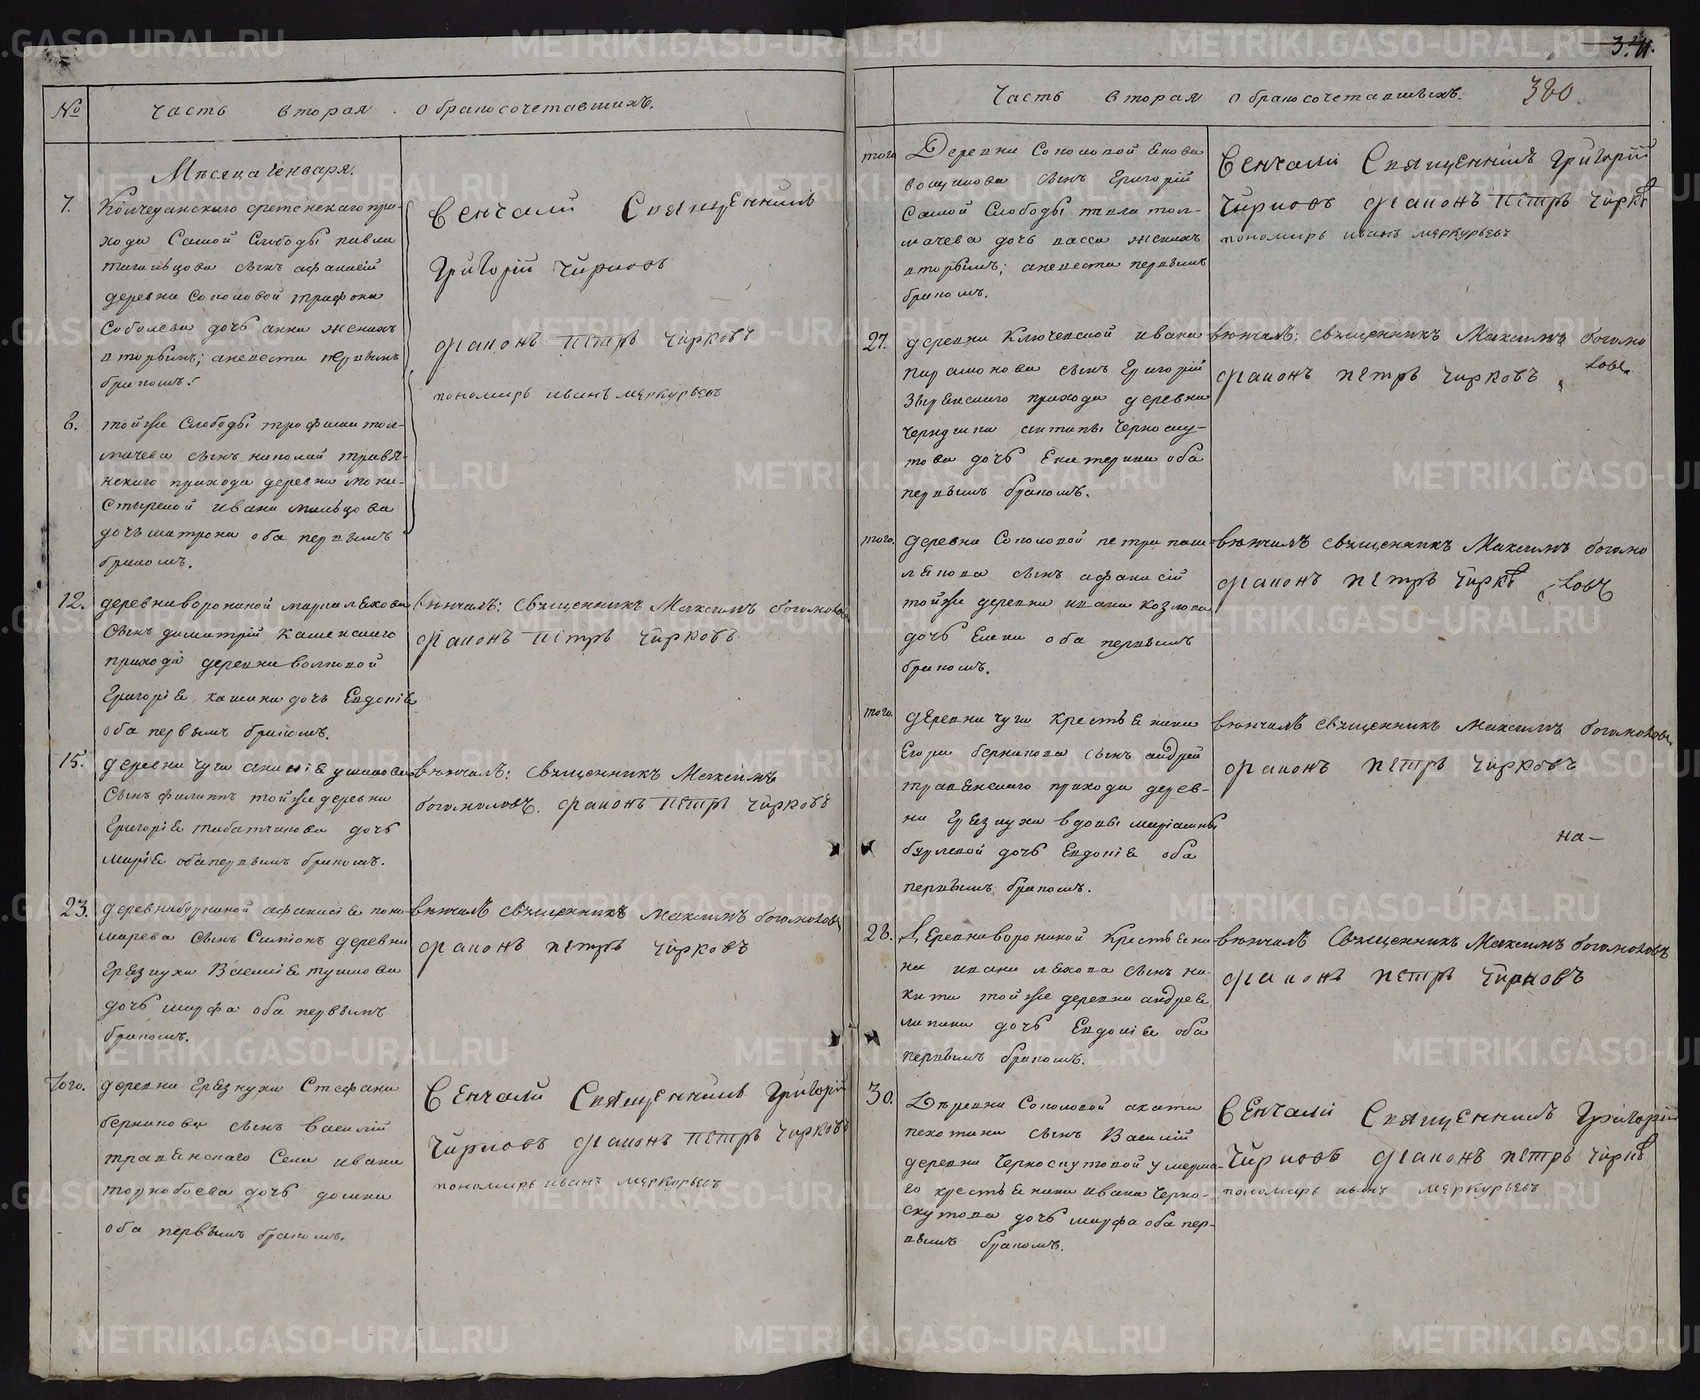 № Часть вторая о бракосочетавшихъ.
Мѣсяца Генваря.
7. Колчеданскаго сретенскаго при-
хода Самой Слободы павла
сынъ афанасій
деревни Соколовой трифона
Соболева дочь анна женихъ
вторымъ; а невеста первымъ
бракомъ.
Венчали Священникъ
Григорій Чирковъ
диаконъ петръ Чирковъ
пономарь иванъ меркурьевъ
8. тойже Слободы трофима тол-
мачева сынъ николай травя-
нскаго прихода деревни мона-
стырской ивана мальцова
дочь матрона оба первымъ
бракомъ.
12. деревни ворониной марка лѣкова
Сынъ димитрій каменскаго
прихода деревни волковой
григорія кашина дочь Евдокія
оба первымъ бракомъ.
вѣнчалъ: Священникъ Максимъ богомоловъ
диаконъ петръ Чирковъ
15. деревни чуги ушакова
Сынъ филиппъ тойже деревни
Григорія табатчикова дочь
марія оба первымъ бракомъ.
вѣнчалъ: Священникъ Максимъ
богомоловъ. диаконъ петръ Чирковъ
23. деревни бурниной афанасія поно-
марева Сынъ Симіонъ деревни
грязнухи Василія тушкова
дочь марфа оба первымъ
бракомъ.
вѣнчалъ Священникъ Максимъ богомоловъ
диаконъ петръ Чирковъ
Того. деревни грязнухи Стефана
берникова сынъ василій
травянскаго Села ивана
дочь домна
оба первымъ бракомъ.
Венчали Священникъ Григорій
Чирковъ диаконъ петръ Чирковъ
пономарь иванъ меркурьевъ
Часть вторая о бракосочетавшихъ. 380.
того Деревни Соколовой якова
сынъ Григорій
Самой Слободы тол-
мачева дочь васса женихъ
вторымъ; а невеста первымъ
бракомъ.
Венчали Священникъ Григорій
Чирковъ диаконъ петръ Чирковъ
пономарь иванъ меркурьевъ
27. деревни Ключевской ивана
парамонова сынъ Григорій
Зырянскаго прихода деревни
антипы Черноску-
това дочь Екатерина оба
первымъ бракомъ.
вѣнчалъ: Священникъ Максимъ богомо
ловъ
диаконъ петръ Чирковъ
того. деревни Соколовой петра паш-
лѣкова сынъ афанасій
тойже деревни ивана козлова
дочь Елена оба первымъ
бракомъ.
вѣнчалъ Священникъ Максимъ богомо
ловъ
диаконъ петръ Чирковъ
того. деревни чуги крестьянина
Егора берникова сынъ андрей
травянскаго прихода дерев-
ни грязнухи вдовы маріамны
бурлевой дочь Евдокія оба
первымъ бракомъ.
вѣнчалъ Священникъ Максимъ богомоловъ
диаконъ петръ Чирковъ
на-
28. Деревни ворониной крестьяни
на ивана лѣкова сынъ ни-
кита тойже деревни андрея
лапина дочь Евдокія оба
первымъ бракомъ.
вѣнчалъ Священникъ Максимъ богомоловъ
диаконъ петръ Чирковъ
30. Деревни Соколовой
пекотина сынъ Василій
деревни Черноскутовой умерша-
го крестьянина ивана Черно-
скутова дочь марфа оба пер-
вымъ бракомъ.
Венчали Священникъ Григорій
Чирковъ диаконъ петръ Чирковъ
пономарь иванъ меркурьевъ
METRIKI.GASO-URAL.RU